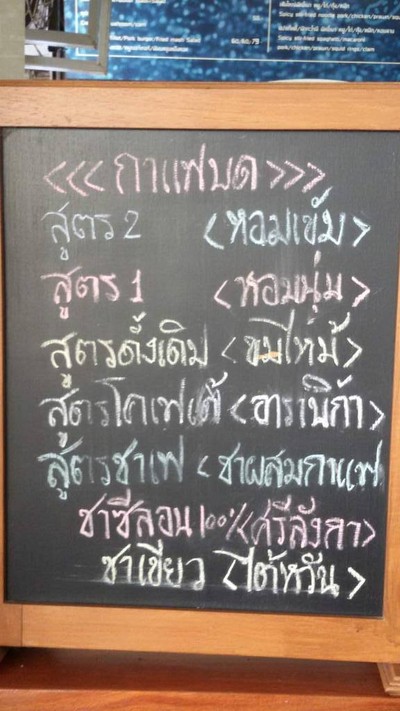 <<<กาแฟบด>>>
สูตร 2 <หอมเข้ม>
สูตร 1 <หอมนุ่ม>
สูตรดั้งเดิม <ขมไหม้>
สูตรโคเฟเต้ <อาราบิก้า>
สูตรชาเฟ <ชาผสมกาแฟ
ชาซีลอน 100% <ศรีลังกา>
ชาเขียว <ไต้หวัน>